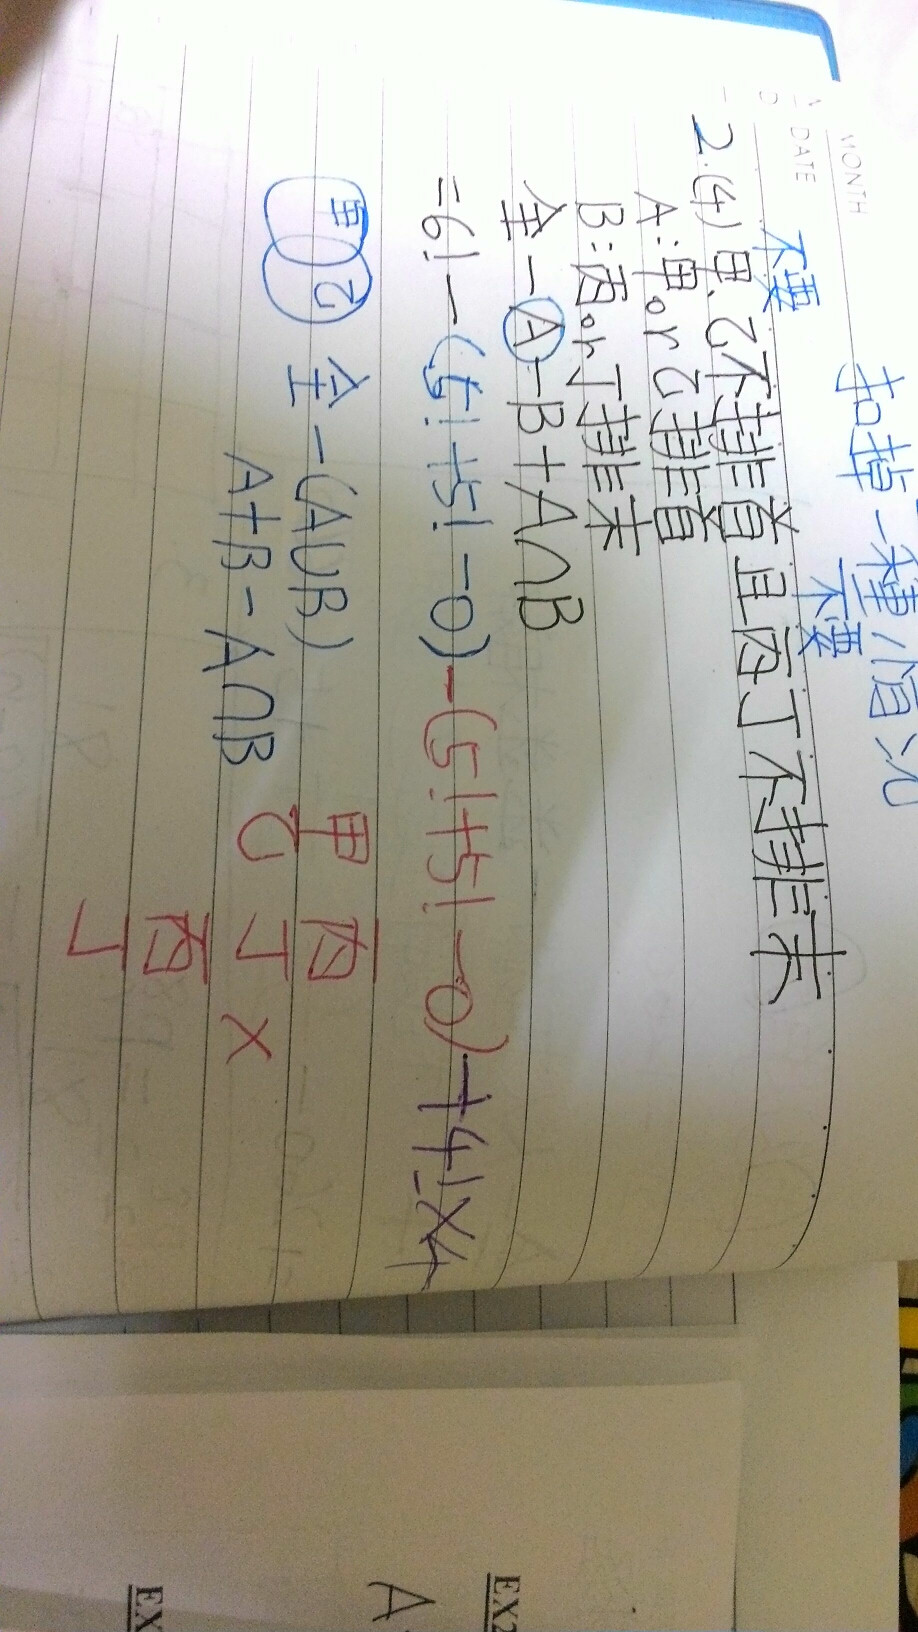 扣掉一種情況
MONTH
DATE
不要 不要
2.(4) 甲、乙不排首且丙丁不排末
A:甲or乙排首
B:丙or丁排末
全-A-B+A∩B
=6!-(5!+5!-0)-(5!+5!-0)+4!×4
甲 乙 全-(A∪B)
A+B-A∩B
甲 丙
乙 丁 ×
丙
丁
EX2
A
EX